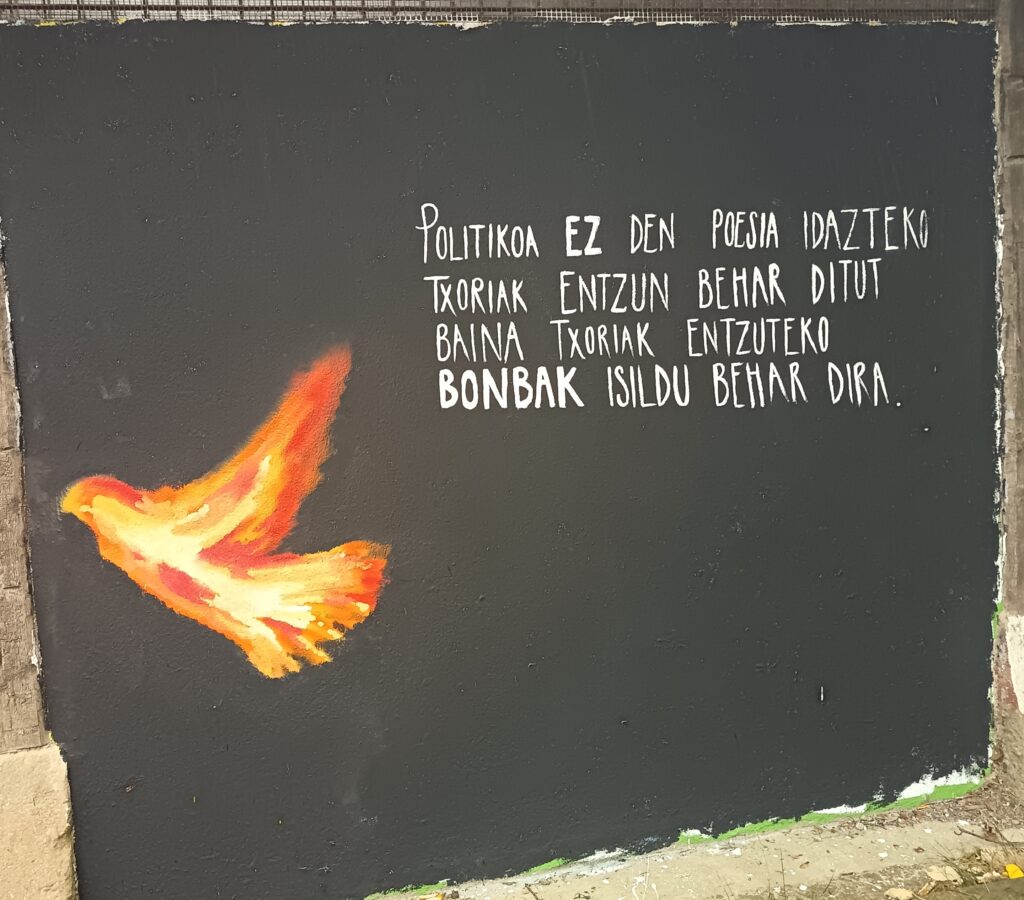 POLITIKOA EZ DEN POESIA IDAZTEKO
TXORIAK ENTZUN BEHAR DITUT
BAINA TXORIAK ENTZUTEKO
BONBAK ISILDU BEHAR DIRA.